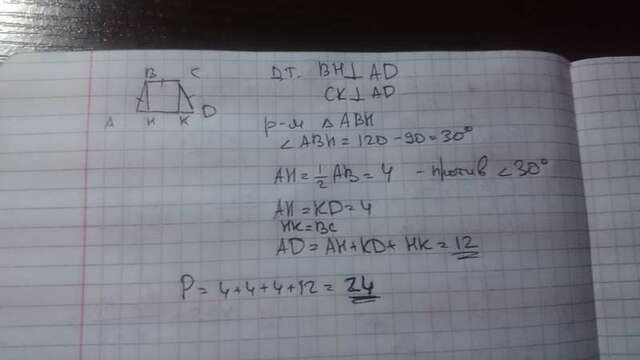 B C
A H K D
Д.П. BH⊥AD
CK⊥AD
р-м △ABH
∠ABH = 120 - 90 = 30°
AH = 1/2 AB = 4 - против ∠30°
AH = KD = 4
HK = BC
AD = AH + KD + HK = 12
P = 4 + 4 + 4 + 12 = 24